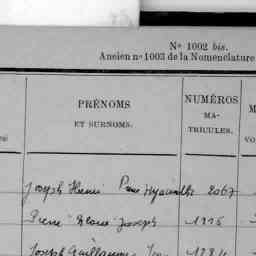 Nº 1002 bis.
Ancien nº 1003 de la Nomenclature
PRÉNOMS
ET SURNOMS.
NUMÉROS
MA-
TRICULES.
M
Joseph Henri Paul Hyacinthe 2067
Pierre Marie Joseph 1116
Joseph Guillaume